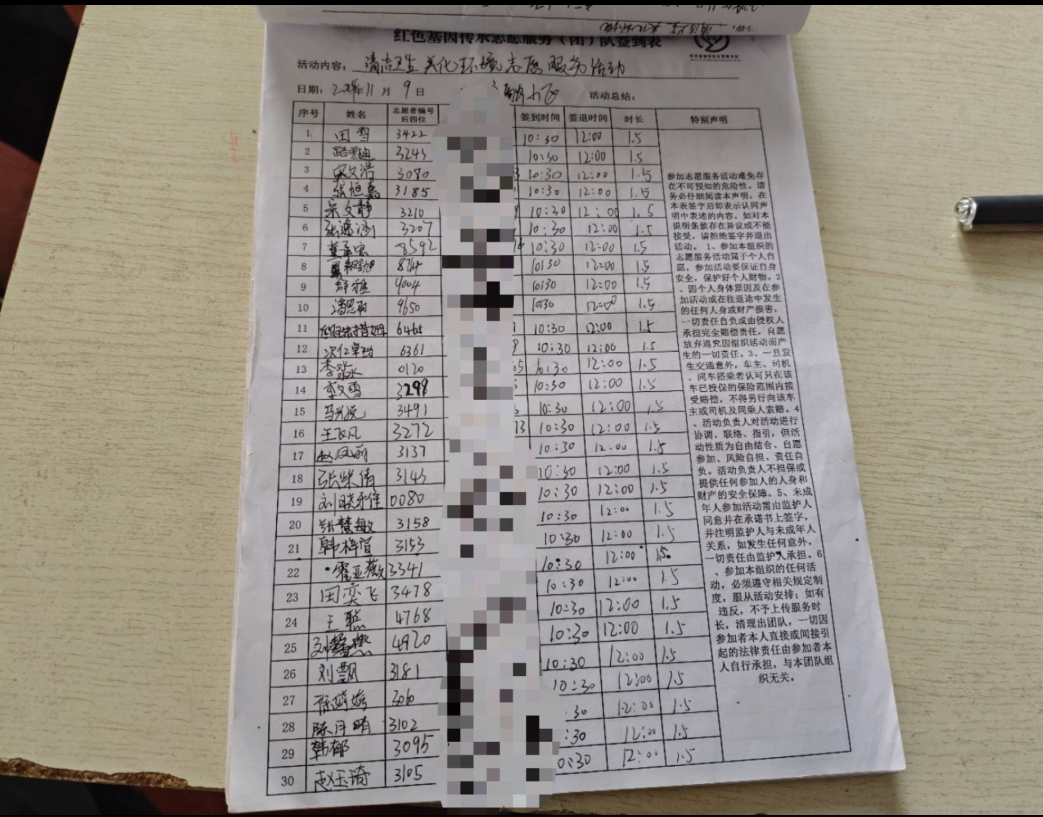 红色基因传承志愿服务（团）队签到表
活动内容：清洁卫生美化环境志愿服务活动
日期：2024年11月9日 活动总结：
序号 姓名 志愿者编号后四位 签到时间 签退时间 时长 特别声明
1 田雪 3422 10:30 12:00 1.5
2 3243 10:30 12:00 1.5
3 3080 10:30 12:00 1.5
4 3185 10:30 12:00 1.5
5 吴文静 3210 10:30 12:00 1.5
6 3207 10:30 12:00 1.5
7 3592 10:30 12:00 1.5
8 10:30 12:00 1.5
9 9004 10:30 12:00 1.5
10 9650 10:30 12:00 1.5
11 6465 10:30 12:00 1.5
12 6361 10:30 12:00 1.5
13 0120 10:30 12:00 1.5
14 3299 10:30 12:00 1.5
15 3491 10:30 12:00 1.5
16 王飞凡 3272 10:30 12:00 1.5
17 赵凤丽 3137 10:30 12:00 1.5
18 张荣倩 3143 10:30 12:00 1.5
19 0080 10:30 12:00 1.5
20 张慧敏 3158 10:30 12:00 1.5
21 3153 10:30 12:00 1.5
22 霍亚薇 3341 10:30 12:00 1.5
23 田奕飞 3478 10:30 12:00 1.5
24 4768 10:30 12:00 1.5
25 4920 10:30 12:00 1.5
26 刘飘 3181 10:30 12:00 1.5
27 10:30 12:00 1.5
28 陈月晴 3102 :30 12:00 1.5
29 韩郁 3095 :30 12:00 1.5
30 赵玉琦 3105 0:30 12:00 1.5
参加志愿服务活动难免存
在不可预知的危险性，请
务必仔细阅读本声明，在
本表签字后即表示认同声
明中表述的内容。如对本
说明条款存在异议或不能
接受，请拒绝签字并退出
活动。1、参加本组织的
志愿服务活动属于个人自
愿，参加活动要保证自身
安全，保护好个人财物。2
、因个人身体原因及在参
加活动或在往返途中发生
的任何人身或财产损害，
一切责任自负或由侵权人
承担完全赔偿责任，自愿
放弃追究因组织活动而产
生的一切责任。3、一旦发
生交通意外，车主、司机
、同车搭乘者认可只在该
车已投保的保险范围内接
受赔偿，不得另行向该车
主或司机及同乘人索赔。4
、活动负责人对活动进行
协调、联络、指引，但活
动性质为自由结合、自愿
参加、风险自担、责任自
负。活动负责人不担保或
提供任何参加人的人身和
财产的安全保障。5、未成
年人参加活动需由监护人
同意并在承诺书上签字，
并注明监护人与未成年人
关系，如发生任何意外，
一切责任由监护人承担。6
、参加本组织的任何活
动，必须遵守相关规定制
度，服从活动安排；如有
违反，不予上传服务时
长，清理出团队，一切因
参加者本人直接或间接引
起的法律责任由参加者本
人自行承担，与本团队组
织无关。